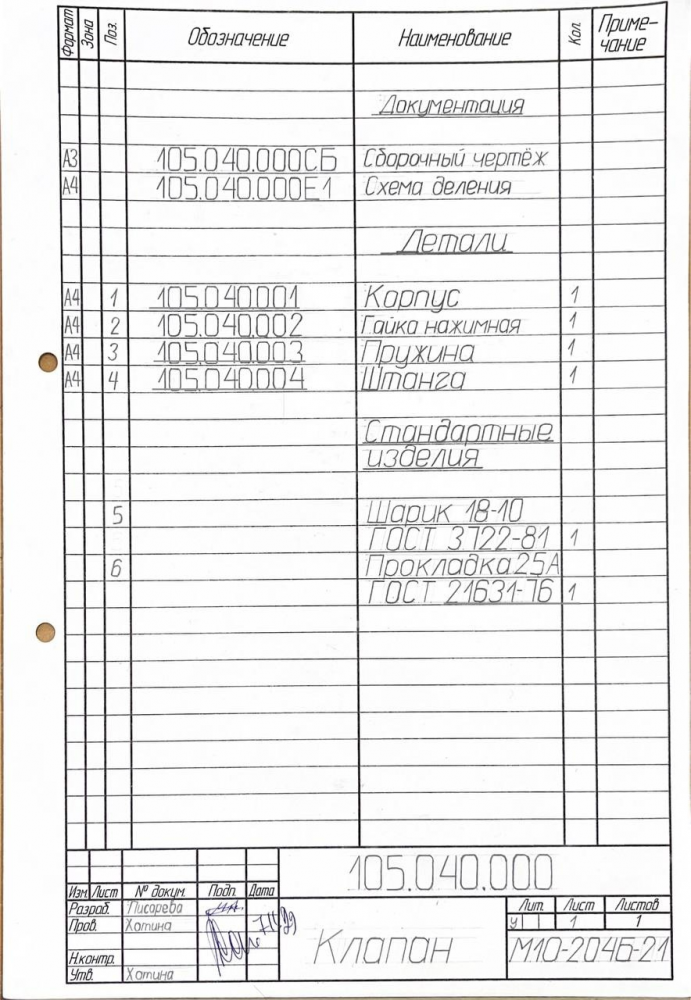 Формат Зона Поз. Обозначение Наименование Кол. Приме-
чание
Документация
А3 105.040.000СБ Сборочный чертёж
А4 105.040.000Е1 Схема деления
Детали
А4 1 105.040.001 Корпус 1
А4 2 105.040.002 Гайка нажимная 1
А4 3 105.040.003 Пружина 1
А4 4 105.040.004 Штанга 1
Стандартные
изделия
5 Шарик 18-10
ГОСТ 3722-81 1
6 Прокладка 25А
ГОСТ 21631-76 1
105.040.000
Изм. Лист № докум. Подп. Дата
Разраб. Писарева
Пров. Хотина
Н.контр.
Утв. Хотина
Клапан
Лит. Лист Листов
у 1 1
М10-204Б-21